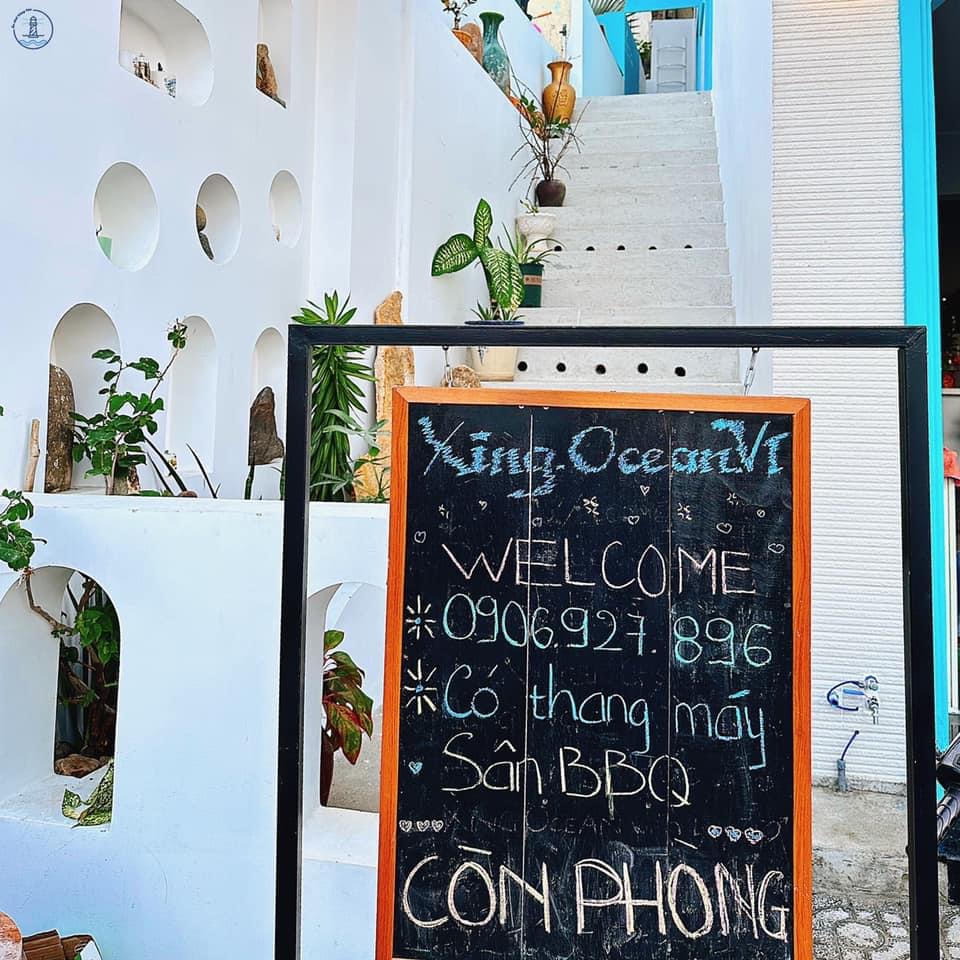 Xing.OceanVT
WELCOME
0906.927.896
Có thang máy
Sân BBQ
XING OCEAN
CÒN PHÒNG